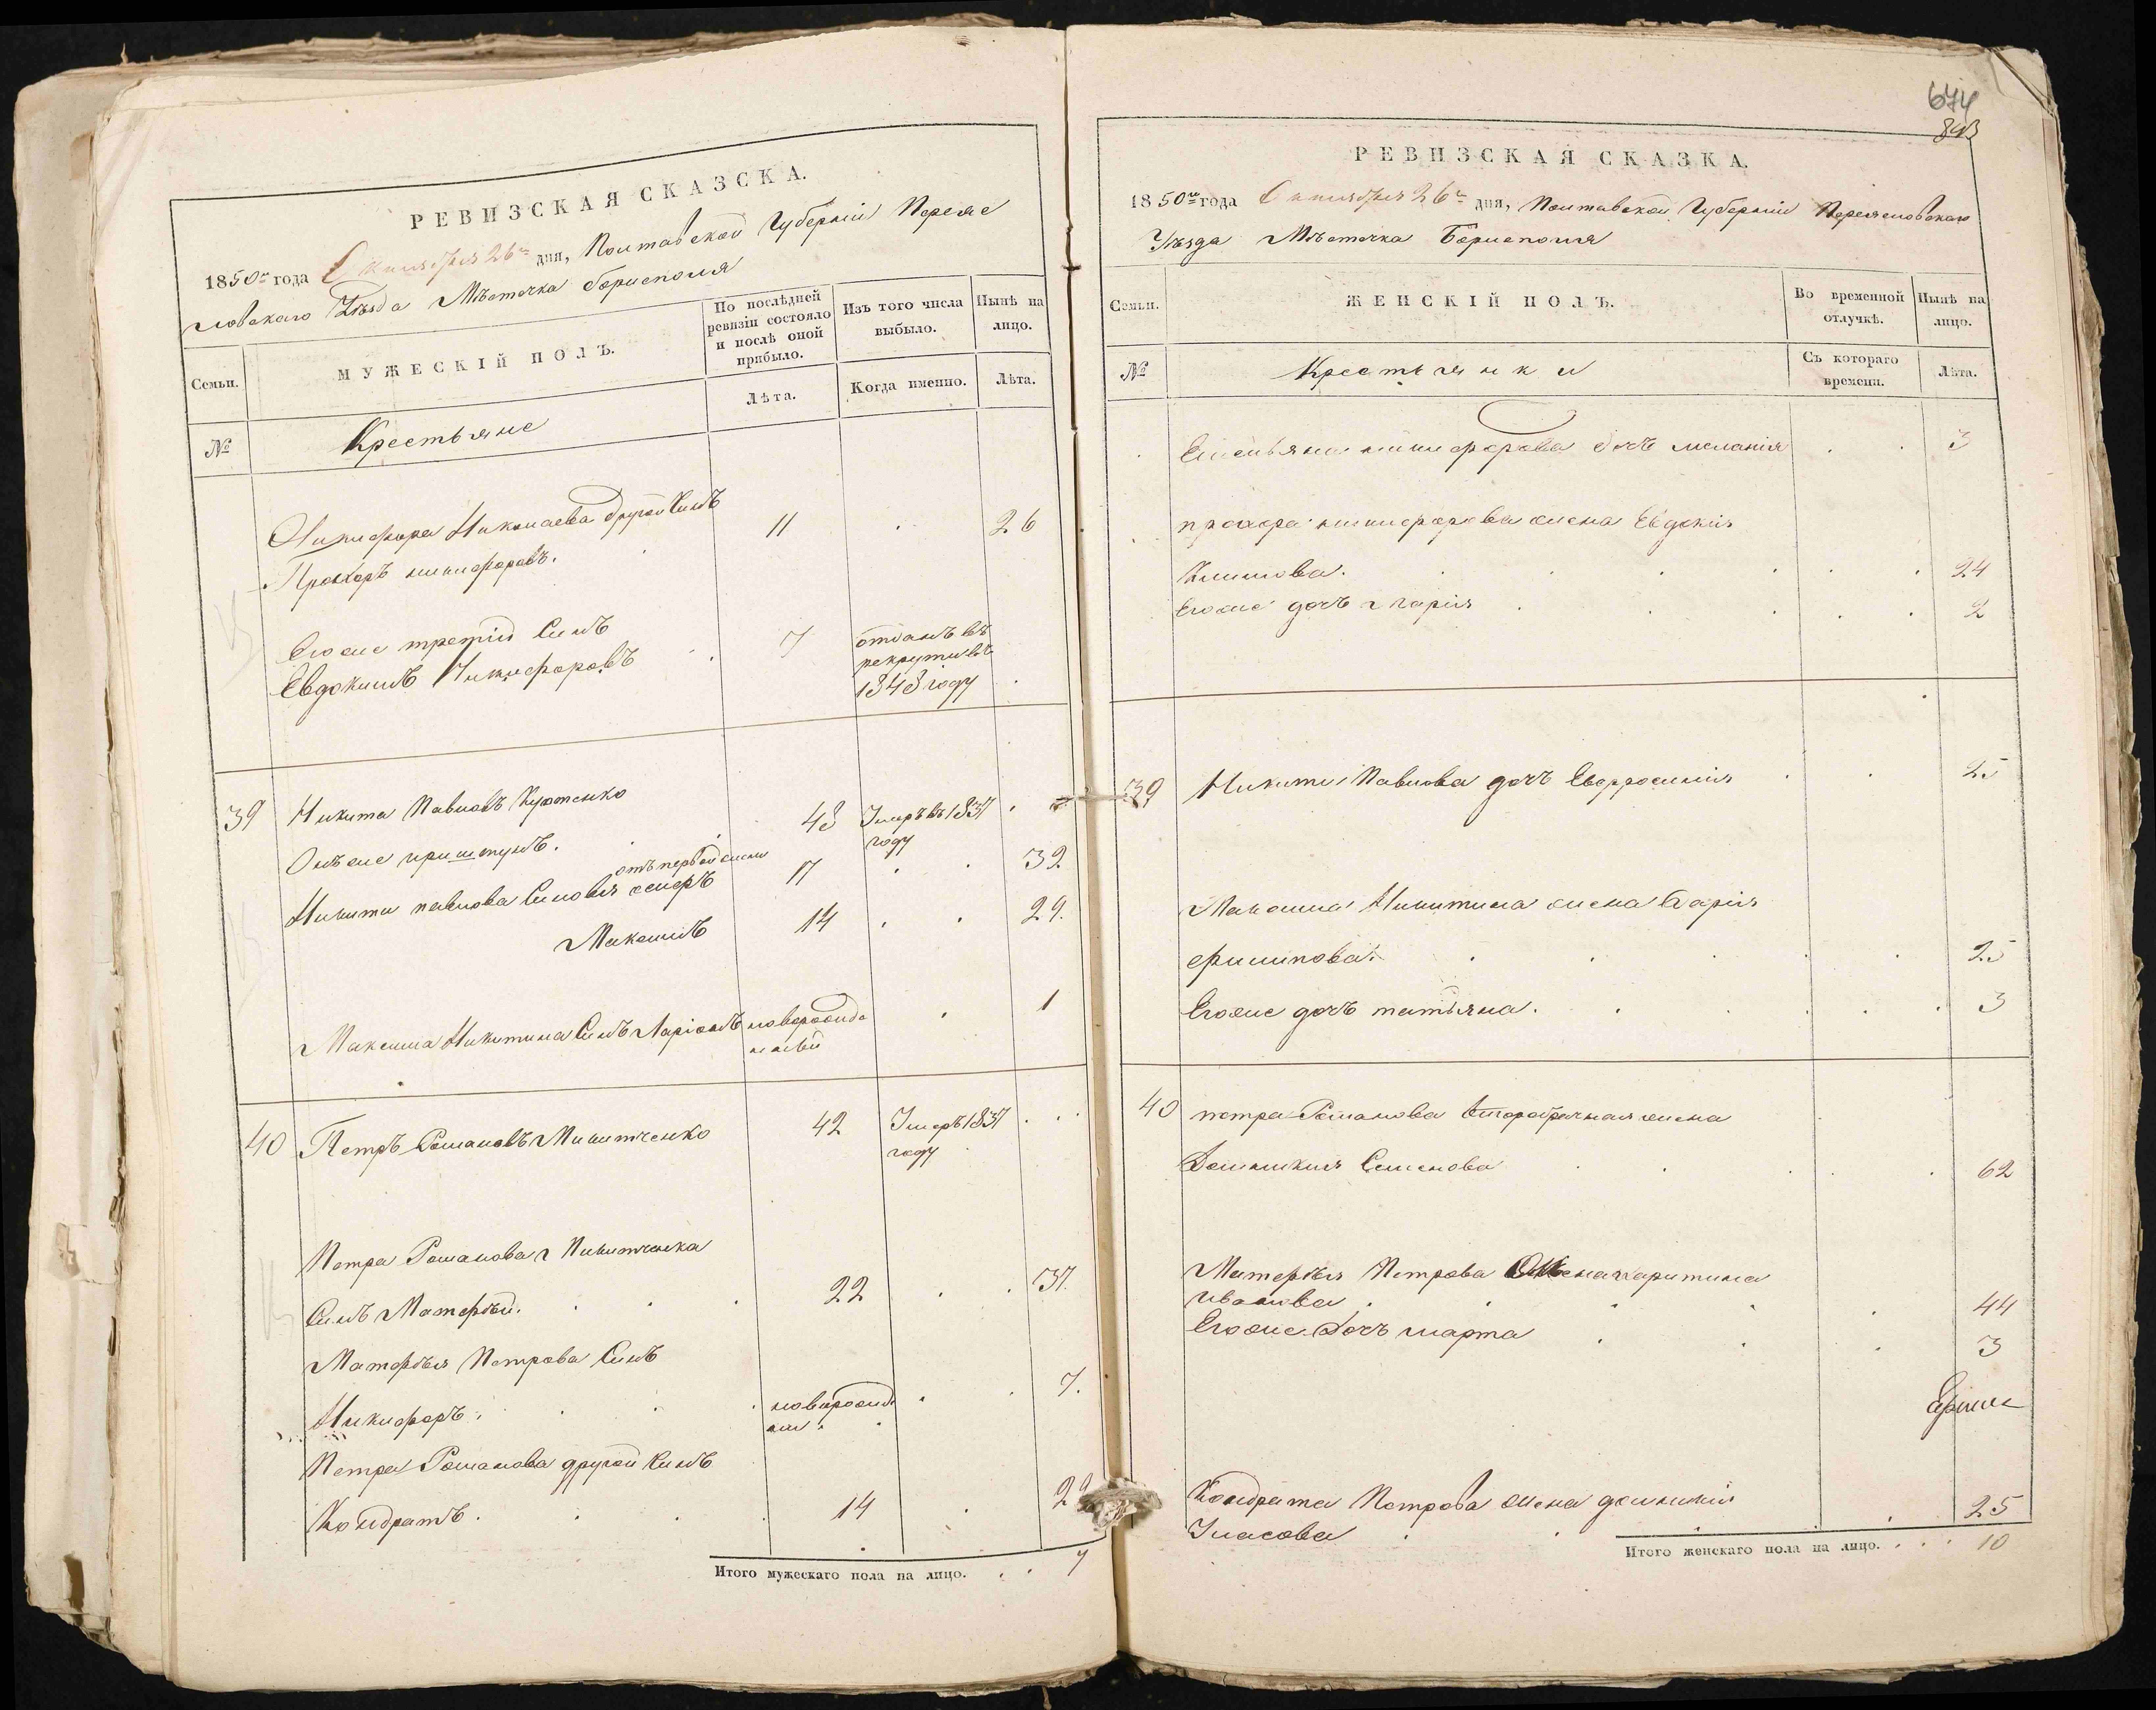 РЕВИЗСКАЯ СКАЗСКА.
1850го года Октября 26го дня, Полтавской Губерніи Переяс
ловскаго Уѣзда Мѣстечка Борисполя
Семьи.
МУЖЕСКІЙ ПОЛЪ.
По послѣдней ревизіи состояло и послѣ оной прибыло.
Изъ того числа выбыло.
Нынѣ на лицо.
№
Крестьяне
Лѣта.
Когда именно.
Лѣта.
Никифора Николаева другой Сынъ
Прохоръ никифоровъ. 11 26
Егоже третій Сынъ
Евдокимъ Никифоровъ 7 отданъ въ
рекруты въ
1848 году
39 Никита Павловъ 48 Умеръ въ 1837
году
Онъ же
отъ первой жены
Никиты павлова Сыновья 17 32
Максимъ 14 29.
Максима Никитина Сынъ Ларіонъ новорожде 1
нный
40 Петръ Романовъ Микитченко 42 Умеръ 1837
году
Петра Романова Микитченка
Сынъ Матвѣй. 22 37.
Матвѣя Петрова Сынъ
Никифоръ. новорожд 7.
Петра Романова другой Сынъ
Кондратъ. 14 29
Итого мужескаго пола на лицо. . . 7
674
РЕВИЗСКАЯ СКАЗКА.
1850го года Октября 26го дня, Полтавской Губерніи Переясловскаго
Уѣзда Мѣстечка Борисполя
Семьи.
ЖЕНСКІЙ ПОЛЪ.
Во временной отлучкѣ.
Нынѣ на лицо.
№
Крестьянки
Съ котораго времени.
Лѣта.
Емельяна никифорова дочь меланія 3
прохора никифорова жена Евдокія
Климова. 24
Егоже дочь марія 2
39 Никиты Павлова дочь Евфросинія 25
Максима Никитина жена Дарія
филипова. 25
Егоже дочь татьяна. 3
40 петра Романова второбрачная жена
Домникія Семенова 62
Матвѣя Петрова Жена харитина
Иванова 44
Егоже Дочь марта 3
Кондрата Петрова жена домникія
Уласова 25
Итого женскаго пола на лицо. . . . 10